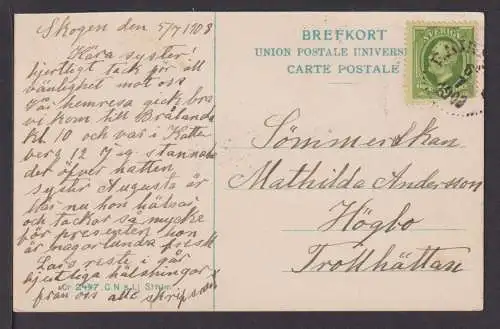 Skogen den 5/7 1908
Kära syster!
hjertligt tack för all
vänlighet mot oss
vår hemresa gick bra
vi kom till Brålanda
kl. 10 och var i Katte
berg 12 jag stannade
der öfver natten
syster Augusta är
här nu hon hälsar
och tackar så mycke
för presenten hon
är någorlunda fresk
Lars reste i går
hjertliga hälsningar
från oss alle skrif snart
BREFKORT
UNION POSTALE UNIVERSELLE
CARTE POSTALE
SVERIGE
Sömmerskan
Mathilda Andersson
Högbo
Trollhättan